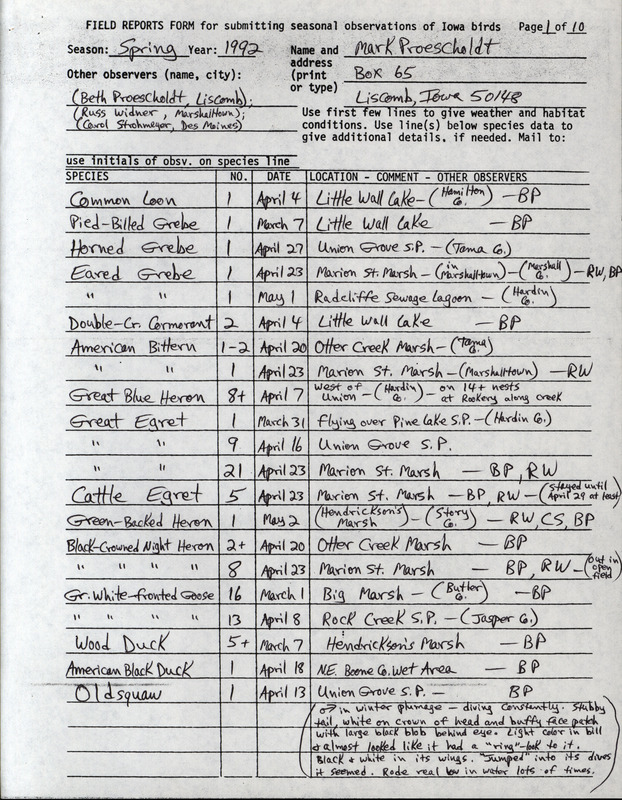 FIELD REPORTS FORM for submitting seasonal observations of Iowa birds Page 1 of 10
Season: Spring Year: 1992 Name and address (print or type) Mark Proescholdt
Box 65
Liscomb, Iowa 50148
Other observers (name, city):
(Beth Proescholdt, Liscomb);
(Russ Widner, Marshalltown);
(Carol Strohmeyer, Des Moines)
Use first few lines to give weather and habitat
conditions. Use line(s) below species data to
give additional details, if needed. Mail to:
use initials of obsv. on species line
SPECIES NO. DATE LOCATION - COMMENT - OTHER OBSERVERS
Common Loon 1 April 4 Little Wall Lake - (Hamilton Co.) - BP
Pied-Billed Grebe 1 March 7 Little Wall Lake - BP
Horned Grebe 1 April 27 Union Grove S.P. - (Tama Co.)
Eared Grebe 1 April 23 Marion St. Marsh - (in Marshalltown) - (Marshall Co.) - RW, BP
" " 1 May 1 Radcliffe Sewage Lagoon - (Hardin Co.)
Double-Cr. Cormorant 2 April 4 Little Wall Lake - BP
American Bittern 1-2 April 20 Otter Creek Marsh - (Tama Co.)
" " 1 April 23 Marion St. Marsh - (Marshalltown) - RW
Great Blue Heron 8+ April 7 west of Union - (Hardin Co.) - on 14+ nests at Rookery along creek
Great Egret 1 March 31 flying over Pine Lake S.P. - (Hardin Co.)
" " 9 April 16 Union Grove S.P.
" " 21 April 23 Marion St. Marsh - BP, RW
Cattle Egret 5 April 23 Marion St. Marsh - BP, RW - (stayed until April 29 at least)
Green-Backed Heron 1 May 2 (Hendrickson's Marsh) - (Story Co.) - RW, CS, BP
Black-Crowned Night Heron 2+ April 20 Otter Creek Marsh - BP
" " " " 8 April 23 Marion St. Marsh - BP, RW - (out in open field)
Gr. White-fronted Goose 16 March 1 Big Marsh - (Butler Co.) - BP
" " " " 13 April 8 Rock Creek S.P. - (Jasper Co.)
Wood Duck 5+ March 7 Hendrickson's Marsh - BP
American Black Duck 1 April 18 N.E. Boone Co. Wet Area - BP
Oldsquaw 1 April 13 Union Grove S.P. - BP
(♂ in winter plumage - diving constantly. Stubby
tail, white on crown of head and buffy face patch
with large black blob behind eye. Light color in bill
& almost looked like it had a "ring"-look to it.
Black & white in its wings. "Jumped" into its dives
it seemed. Rode real low in water lots of times.)